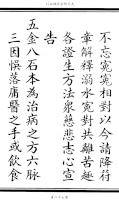 不忘寃寃相對以今請降符
章解釋溺水寃對共離苦趣
各證生方法衆慈悲志心宣
告
五金八石本為治病之方六脉
三因悮落庸醫之手或飲食